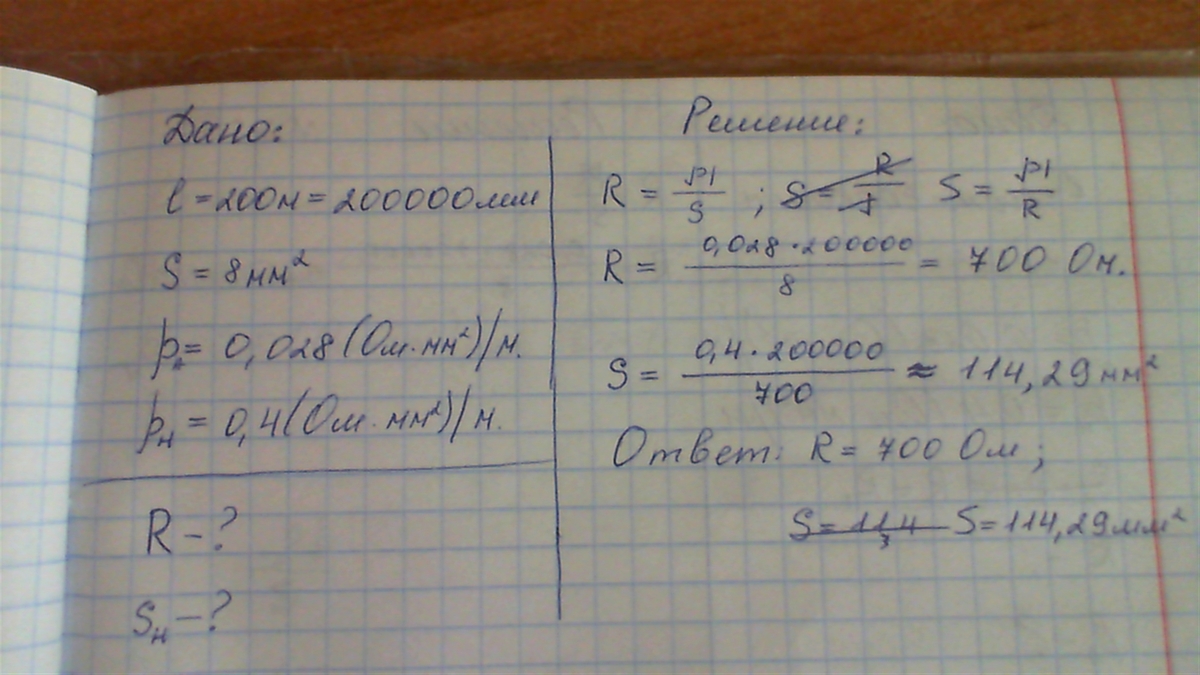 Дано:
l = 200м = 200000мм
S = 8мм²
ρₐ = 0,028(Ом·мм²)/м.
ρн = 0,4(Ом·мм²)/м.
R – ?
Sн – ?
Решение:
R = ρl/S ; S = R S = ρl/R
R = 0,028·200000/8 = 700 Ом.
S = 0,4·200000/700 ≈ 114,29мм²
Ответ: R = 700 Ом ;
S = 114 S = 114,29мм²